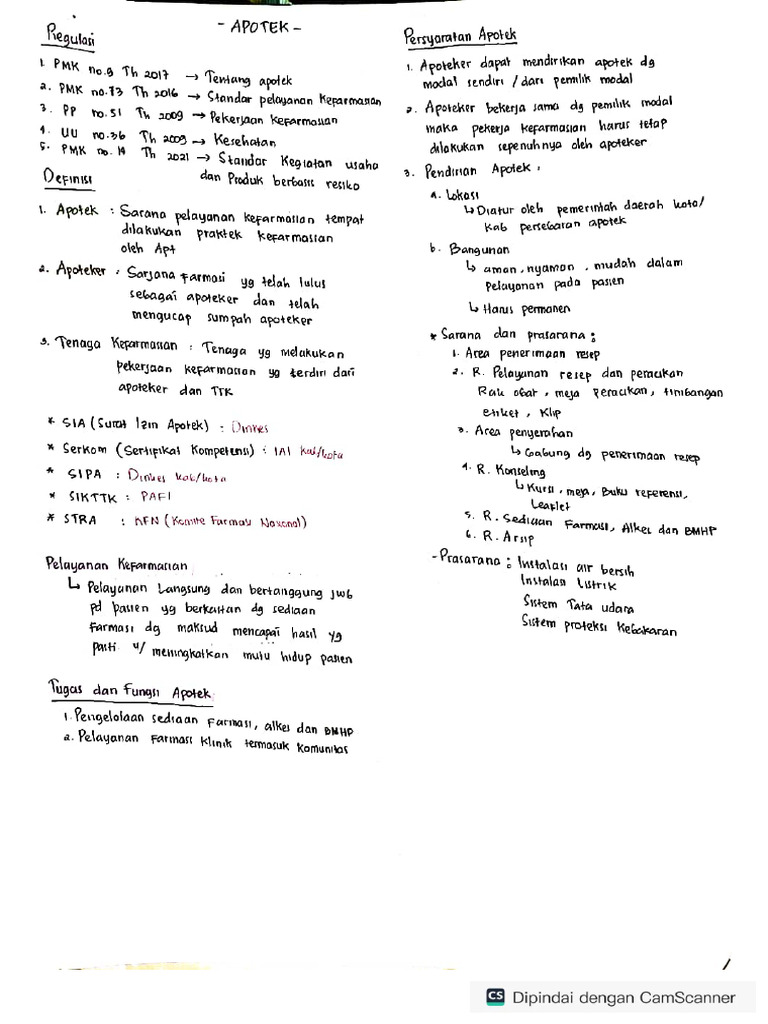 - APOTEK -
Regulasi
1. PMK no.9 Th 2017 → Tentang apotek
2. PMK no.73 Th 2016 → Standar pelayanan Kefarmasian
3. PP no.51 Th 2009 → Pekerjaan Kefarmasian
4. UU no.36 Th 2009 → Kesehatan
5. PMK no.14 Th 2021 → Standar Kegiatan usaha
dan Produk berbasis resiko
Definisi
1. Apotek : Sarana pelayanan kefarmasian tempat
dilakukan praktek kefarmasian
oleh Apt
2. Apoteker : Sarjana farmasi yg telah lulus
sebagai apoteker dan telah
mengucap sumpah apoteker
3. Tenaga Kefarmasian : Tenaga yg melakukan
pekerjaan kefarmasian yg terdiri dari
apoteker dan TTK
* SIA (Surat Izin Apotek) : Dinkes
* Serkom (Sertifikat Kompetensi) : IAI kab/kota
* SIPA : Dinkes kab/kota
* SIKTTK : PAFI
* STRA : KFN (Komite Farmasi Nasional)
Pelayanan Kefarmasian
↳ Pelayanan Langsung dan bertanggung jwb
pd pasien yg berkaitan dg sediaan
Farmasi dg maksud mencapai hasil yg
pasti u/ meningkatkan mutu hidup pasien
Tugas dan Fungsi Apotek
1. Pengelolaan sediaan Farmasi, alkes dan BMHP
2. Pelayanan Farmasi Klinik termasuk Komunitas
Persyaratan Apotek
1. Apoteker dapat mendirikan apotek dg
modal sendiri / dari pemilik modal
2. Apoteker bekerja sama dg pemilik modal
maka pekerja kefarmasian harus tetap
dilakukan sepenuhnya oleh apoteker
3. Pendirian Apotek :
a. Lokasi
↳ Diatur oleh pemerintah daerah kota/
kab persebaran apotek
b. Bangunan
↳ aman, nyaman, mudah dalam
pelayanan pada pasien
↳ Harus permanen
* Sarana dan prasarana :
1. Area penerimaan resep
2. R. Pelayanan resep dan peracikan
Rak obat, meja peracikan, timbangan
etiket, Klip
3. Area penyerahan
↳ Gabung dg penerimaan resep
4. R. Konseling
↳ Kursi, meja, Buku referensi,
Leaflet
5. R. Sediaan Farmasi, Alkes dan BMHP
6. R. Arsip
- Prasarana : Instalasi air bersih
Instalasi Listrik
Sistem Tata udara
Sistem proteksi Kebakaran
1
CS Dipindai dengan CamScanner